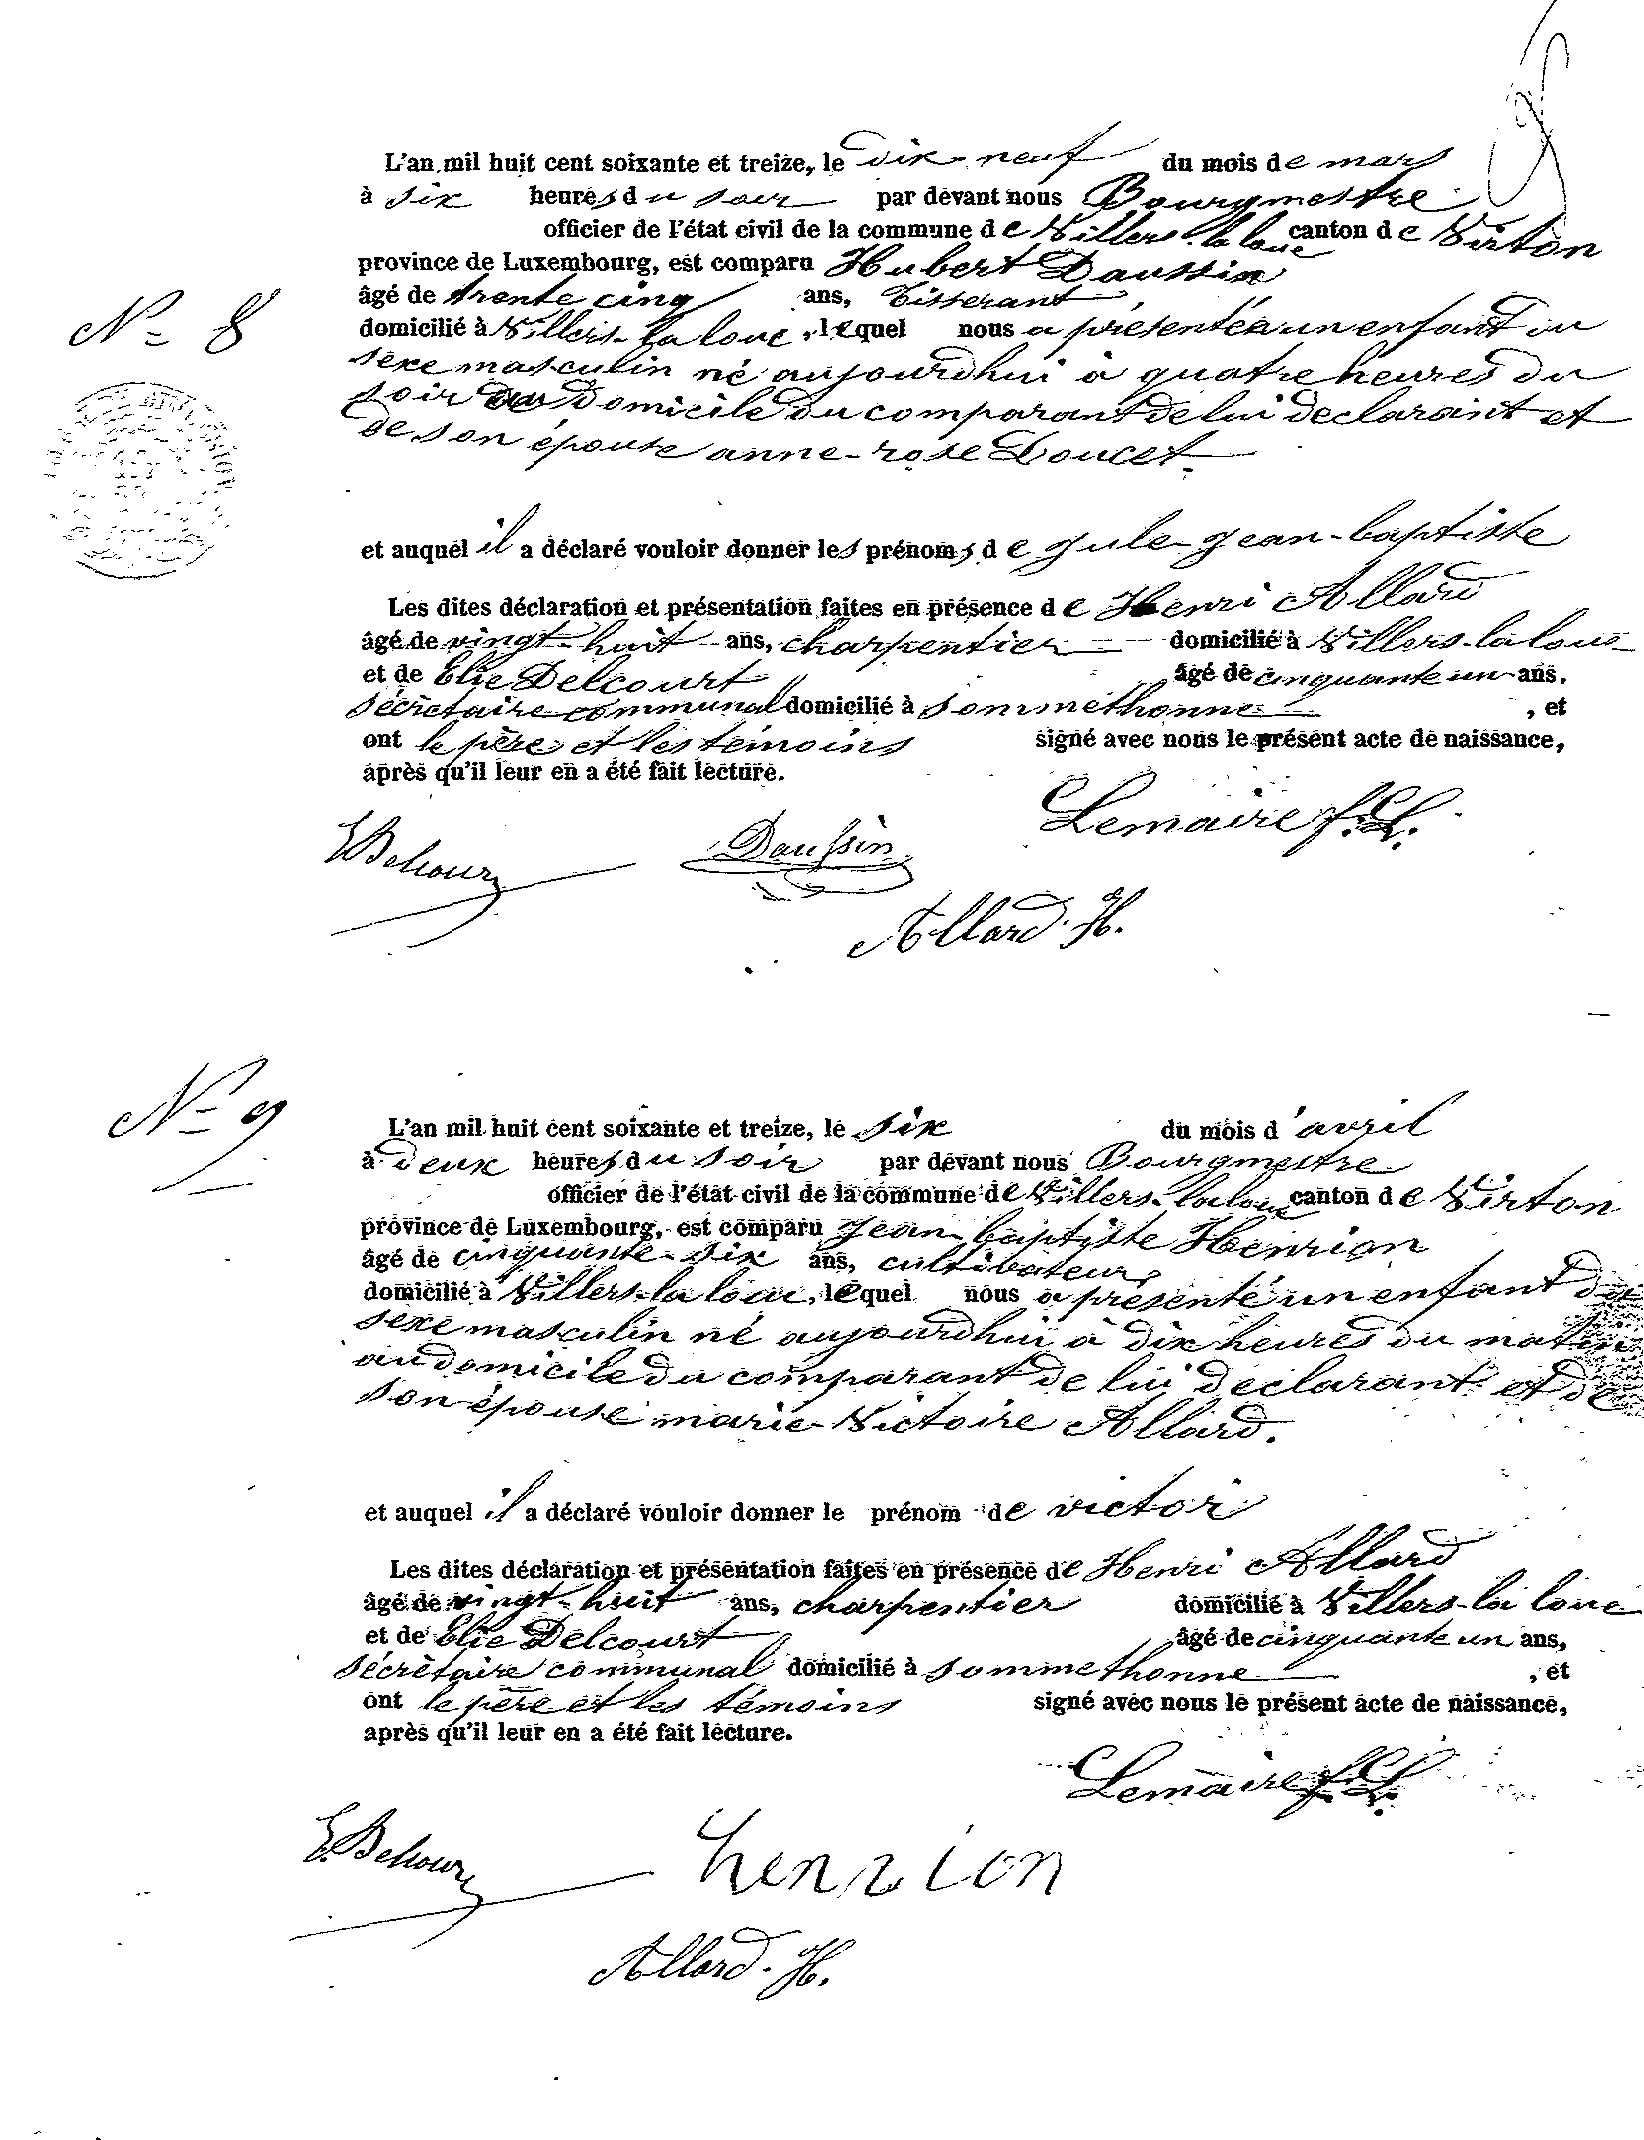 L'an mil huit cent soixante et treize, le dix-neuf du mois de mars
à six heures du soir par devant nous Bourgmestre
officier de l'état civil de la commune de Villers-la loue canton de Virton
province de Luxembourg, est comparu Hubert Daussin
âgé de trente cinq ans, Tisserant
N= 8
domicilié à Villers-la loue, lequel nous a présenté un enfant du
sexe masculin né aujourdhui à quatre heures du
soir au Domicile du comparant de lui declarant et
de son épouse anne-rose Doucet
et auquel il a déclaré vouloir donner les prénoms de Jule Jean-baptiste
Les dites déclaration et présentation faites en présence de Henri Allard
âgé de vingt-huit ans, charpentier domicilié à Villers-la loue
et de Elie Delcourt âgé de cinquante un ans,
sécrètaire communal domicilié à Sommethonne, et
ont le père et les témoins signé avec nous le présent acte de naissance,
après qu'il leur en a été fait lecture.
Lemaire f. L.
Daussin
Allard. H.
N= 9
L'an mil huit cent soixante et treize, le six du mois d'avril
à deux heures du soir par devant nous Bourgmestre
officier de l'état civil de la commune de Villers-la loue canton de Virton
province de Luxembourg, est comparu Jean-baptiste Henrion
âgé de cinquante-six ans, cultivateur,
domicilié à Villers-la loue, lequel nous a présenté un enfant du
sexe masculin né aujourdhui à dix heures du matin
au domicile du comparant de lui declarant et de
son épouse marie-Victoire Allard.
et auquel il a déclaré vouloir donner le prénom de victor
Les dites déclaration et présentation faites en présence de Henri Allard
âgé de vingt-huit ans, charpentier domicilié à Villers-la loue
et de Elie Delcourt âgé de cinquante un ans,
sécrètaire communal domicilié à Sommethonne, et
ont le père et les témoins signé avec nous le présent acte de naissance,
après qu'il leur en a été fait lecture.
Lemaire f. L.
henrion
Allard. H.